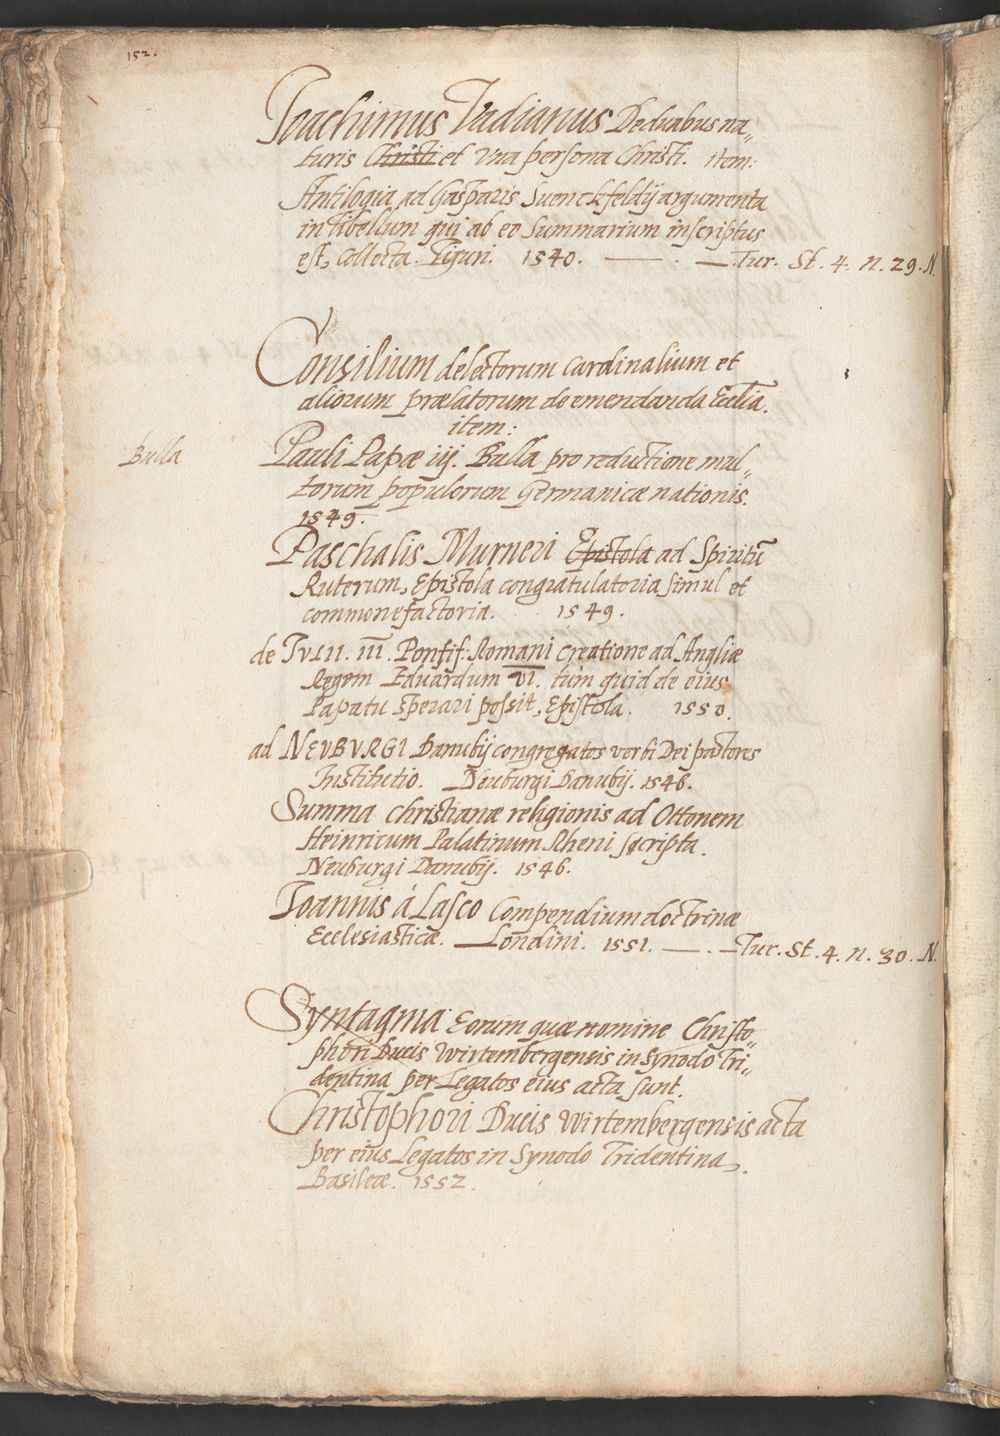 152.
Joachimus Vadianus De duabus na„
turis Christi et Vna persona Christi. item:
Antilogia ad Gasparis Suenckfeldij argumenta
in libellum qui ab eo Summarium inscriptus
est, Collecta. Tiguri. 1540. — . — Tur. St. 4. n. 29. N.
Consilium delectorum Cardinalium et
aliorum prælatorum de emendanda Ecclia.
item:
Bulla
Pauli Papæ iij. Bulla pro reductione mul„
torum populorum Germanicæ nationis.
1549.
Paschalis Murneri Epistola ad Spiritū
Ruterum, Epistola congratulatoria simul et
commonefactoria. 1549.
de IVLII. III. Pontif: Romani creatione ad Angliæ
Regem Eduardum VI. tùm quid de eius
Papatu sperari possit, Epistola. 1550.
ad NEVBVRGI Danubij congregatos verbi Dei pastores
Institutio. Neuburgi Danubij. 1546.
Summa Christianæ religionis ad Ottonem
Heinricum Palatinum Rheni scripta.
Neuburgi Danubij. 1546.
Joannis á Lasco Compendium doctrinæ
Ecclesiasticæ. Londini. 1551. — . — Tur. St. 4. n. 30. N.
Syntagma Eorum quæ nomine Christo„
phori Ducis Wirtembergensis in Synodo Tri„
dentina per Legatos eius acta sunt.
Christophori Ducis Wirtembergensis acta
per eius Legatos in Synodo Tridentina.
Basileæ. 1552.